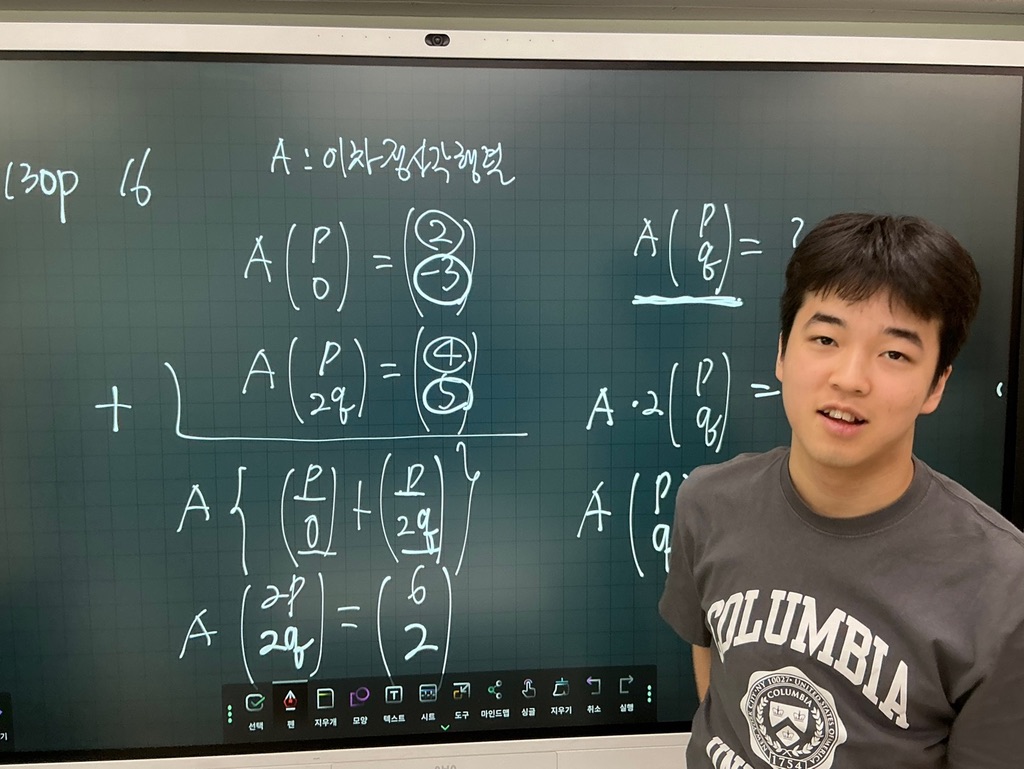 130p 16
A : 이차정사각행렬
A (P 0) = (2 -3)
A (P 2q) = (4 5)
+
A { (P 0) + (P 2q) }
A (2P 2q) = (6 2)
A (P q) = ?
A · 2 (P q) =
A (P q
선택 펜 지우개 모양 텍스트 시트 도구 마인드맵 싱글 지우기 취소 실행
기
COLUMBIA
COLUMBIA
1754